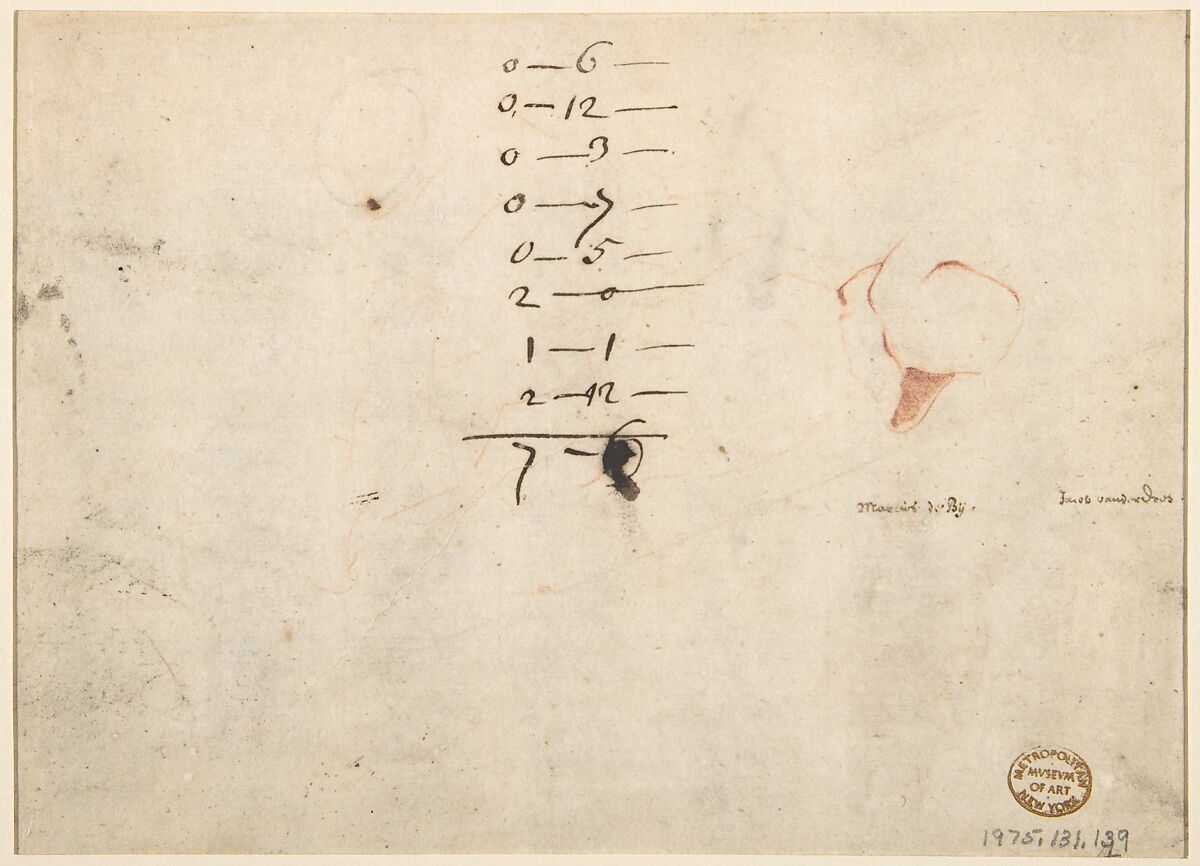 0 — 6 —
0 — 12 —
0 — 3 —
0 — 7 —
0 — 5 —
2 — 0 —
1 — 1 —
2 — 12 —
7 — 6
Marcus de Bÿ.
Jacob vander Does
METROPOLITAN
MVSEVM
OF ART
NEW YORK
1975.131.139